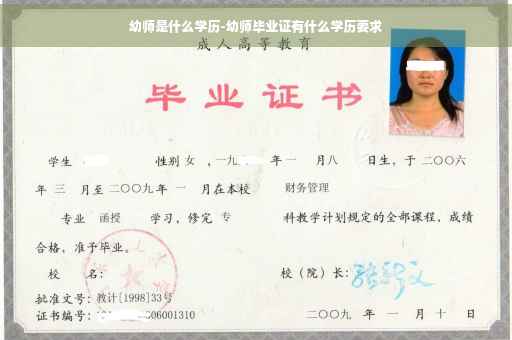 幼师是什么学历-幼师毕业证有什么学历要求
成人高等教育
毕业证书
学生 性别 女 ，一九 年 一 月 八 日生，于 二〇〇六
年 三 月至 二〇〇九 年 一 月在本校 财务管理
专业 函授 学习，修完 专 科教学计划规定的全部课程，成绩
合格，准予毕业。
校 名： 校（院）长：
批准文号：教计[1998]33号
证书编号： 06001310 二〇〇九 年 一 月 十 日